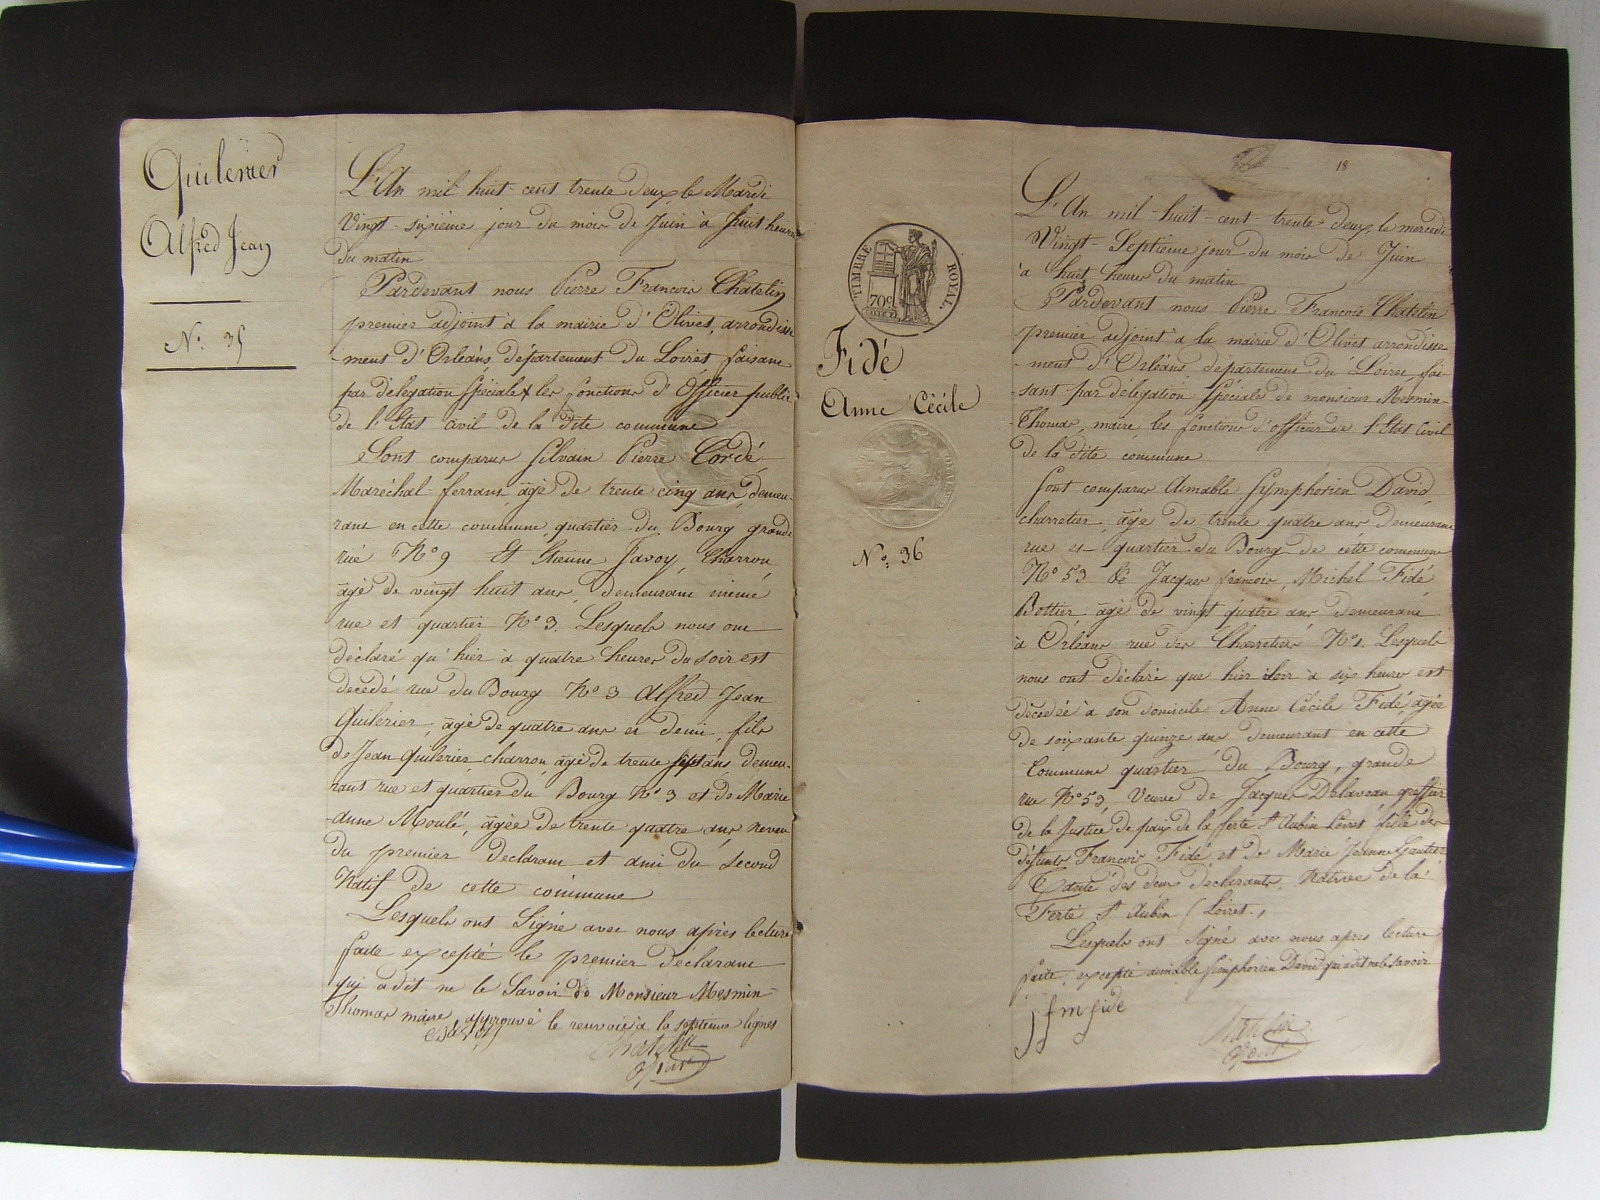 Quilerier
Alfred Jean
N.° 35
L'An mil huit-cent trente deux, le Mardi
Vingt-sixième jour du mois de Juin à huit heures
du matin
Pardevant nous Pierre François Chatelin
premier adjoint à la mairie d'Olivet, arrondisse
-ment d'Orléans, département du Loiret, faisant
par délégation spéciale les fonctions d'Officier public
de l'Etat civil de la dite commune
Sont comparus Silvain Pierre Cordé
Maréchal-ferrant âgé de trente cinq ans, demeu-
rant en cette commune, quartier du Bourg grande
rue N° 9 Et Etienne Javoy, Charron
âgé de vingt huit ans, demeurant même
rue et quartier N° 3. Lesquels nous ont
déclaré qu'hier à quatre heures du soir est
décédé rue du Bourg N° 3 Alfred Jean
Quilerier, âgé de quatre ans et demi, fils
de Jean Quilerier, charron, âgé de trente sept ans, demeu-
rant rue et quartier du Bourg N° 3 et de Marie
Anne Moulé, âgée de trente quatre ans neveu
du premier déclarant et ami du second
Natif de cette commune
Lesquels ont Signé avec nous après lecture
faite excepté le premier déclarant
qui a dit ne le Savoir de Monsieur Mesmin-
Thomas maire, approuvé le renvoi à la septième lignes
Chatelin
adjoint
18
TIMBRE ROYAL
70c
Fidé
Anne Cécile
N.° 36
L'An mil-huit-cent-trente-deux, le mercredi
Vingt-Septième jour du mois de Juin
à huit heures du matin
Pardevant nous Pierre François Chatelin
premier adjoint à la mairie d'Olivet arrondisse
-ment d'Orléans, département du Loiret, fai-
-sant par délégation Spéciale de monsieur Mesmin-
Thomas, maire, les fonctions d'officier de l'Etat Civil
de la dite commune
Sont comparus Aimable Symphorien David,
charretier, âgé de trente quatre ans demeurant
rue et quartier du Bourg de cette commune
N° 53 & Jacques françois, Michel Fidé
Bottier, âgé de vingt quatre ans demeurant
à Orléans rue des Charretiers N° 1. Lesquels
nous ont déclaré que hier soir à six heures est
décédée à son domicile Anne Cécile Fidé, âgée
de soixante quinze ans demeurant en cette
Commune quartier du Bourg, grande
rue N° 53, Veuve de Jacques Delaveau greffier
de la Justice de paix de la ferté St Aubin Loiret fille des
défunts François Fidé et de Marie Jeanne Gautier
Tante des deux déclarants, Native de la
Ferté St Aubin (Loiret.)
Lesquels ont Signé avec nous après lecture
faite, excepté aimable Simphorien David qui a dit ne le savoir
jfm fidé
Chatelin
adjoint